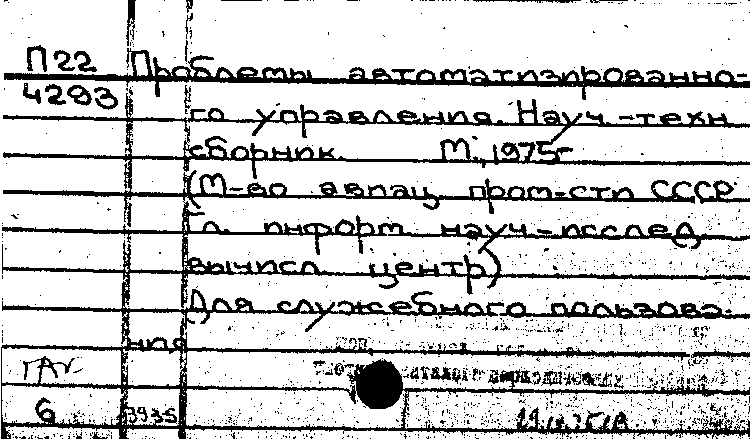 П22
4293
Проблемы автоматизированно-
го управления. Науч.-техн.
сборник. М., 1975-
(М-во авиац. пром-сти СССР
Гл. информ. науч.-исслед.
вычисл. центр)
Для служебного пользова-
ния
6